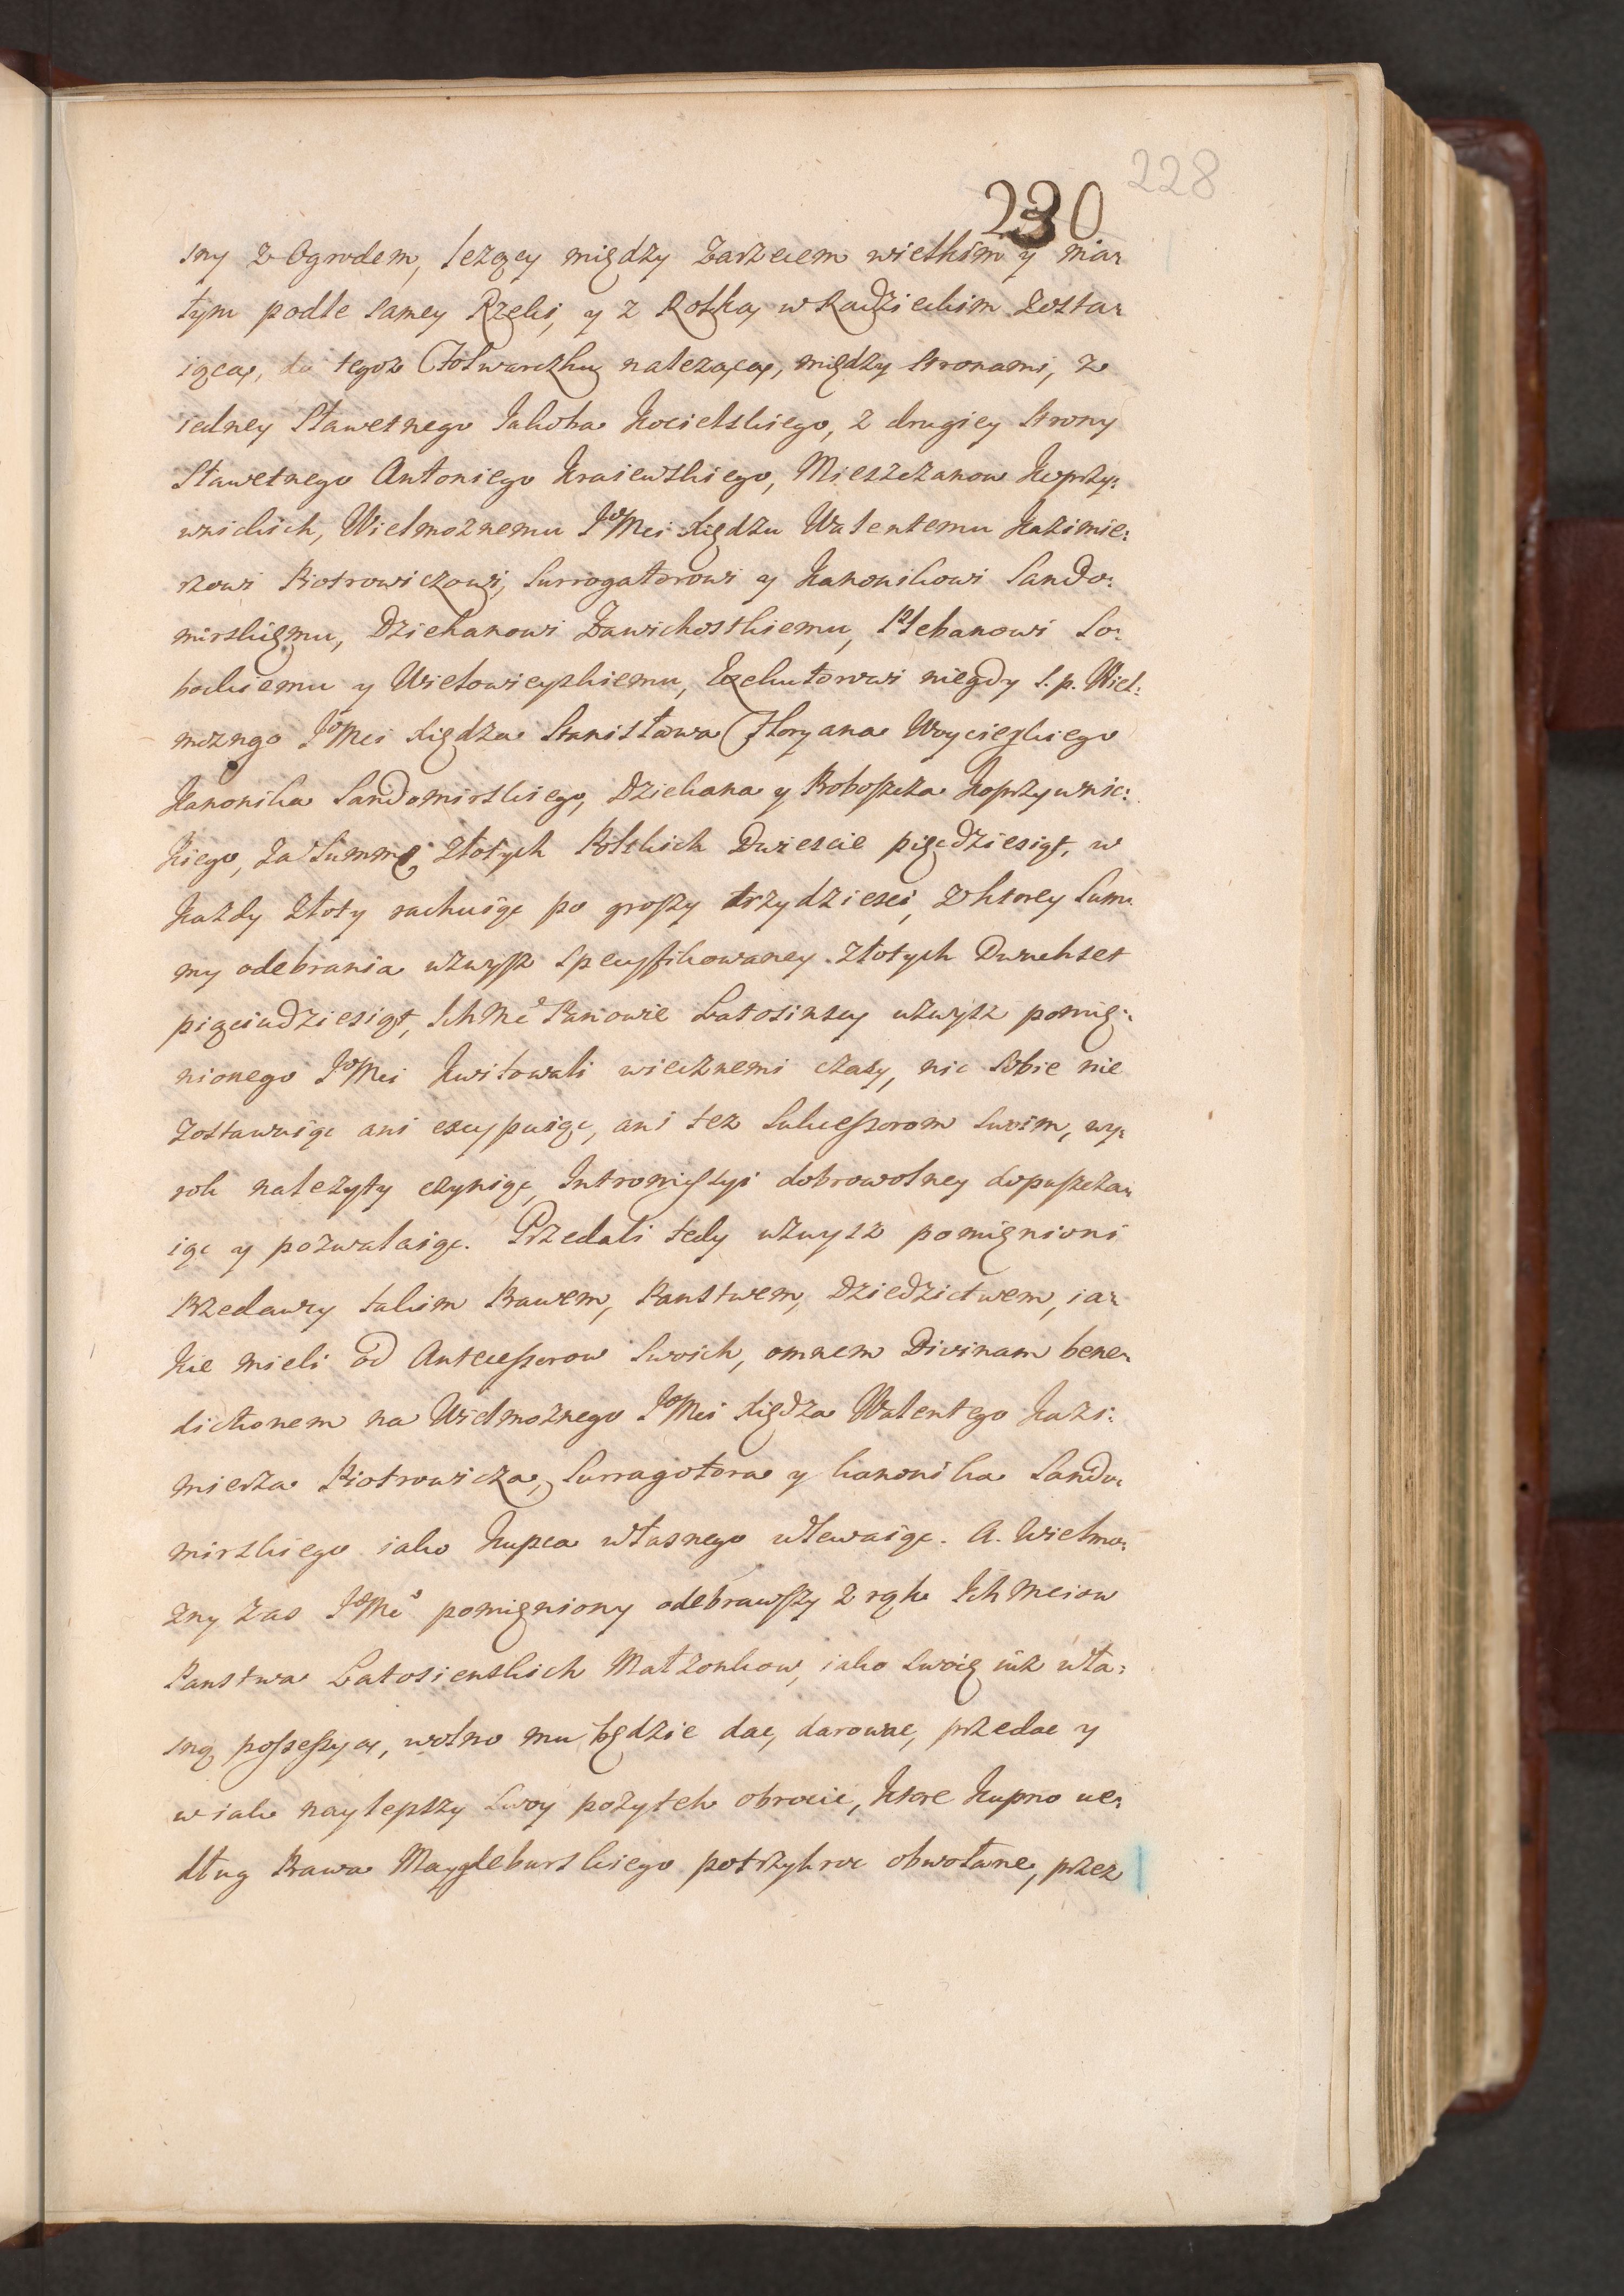 228
230
sny z Ogrodem, lezący między Zarzeciem wielkim y mia:
łym podle samey Rzeki, y z Rolką w Radzieckim Zosta:
iącą, do tegoz Folwarczku nalezącą, między stronami, z
iedney Sławetnego Jakoba Kocielskiego, z drugiey strony
Sławetnego Antoniego Kraiewskiego, Mieszczanow Koprzy:
wnickich, Wielmoznemu JoMci Xiędzu Walentemu Kazimie:
rzowi Piotrowiczowi, Surrogatorowi y Kanonikowi Sando:
mirskiemu, Dziekanowi Zawichostkiemu, Plebanowi So:
bockiemu y Wielowieyskiemu, Exekutorowi niegdy S. p. Wiel:
mozngo JoMci Xiędza Stanisława Floryana Woycieskiego
Kanonika Sandomirskiego, Dziekana y Proboszcza Koprzywnic:
kiego, za Summę Złotych Polskich Dwiescie pięćdziesiąt, w
kazdy złoty rachuiąc po groszy trzydziesci, z ktorey Sum:
my odebrania wzwysz specyfikowaney Złotych Dwuchset
pięciudziesiąt, IchMć Panowie Łatosinscy wzwysz pomię:
nionego JoMci kwitowali wiecznemi czasy, nic sobie nie
zostawuiąc ani excypuiąc, ani tez Sukcessorom swoim, wy:
rok nalezyty czyniąc, Intromissyi dobrowolney dopuszcza:
iąc y pozwalaiąc. Przedali tedy wzwysz pomięnioni
Przedawcy takim Prawem, Panstwem, Dziedzictwem, ia:
kie mieli od Antecessorow swoich, omnem Divinam bene:
dictionem na Wielmoznego JoMci Xiędza Walentego Kazi:
mierza Piotrowicza, Surragotora y kanonika Sando:
mirskiego iako Kupca własnego wlewaiąc. A. Wielmo:
zny zas JoMć pomięniony odebrawszy z rąk IchMciow
Panstwa Łatosienskich Małzonkow, iako swoię iuz wła:
sną possessyą, wolno mu będzie dac, darowac, przedac y
w iak naylepszy swoy pozytek obrocic, ktore kupno we:
dług Prawa Maygleburskiego potrzykroc obwołane, przez